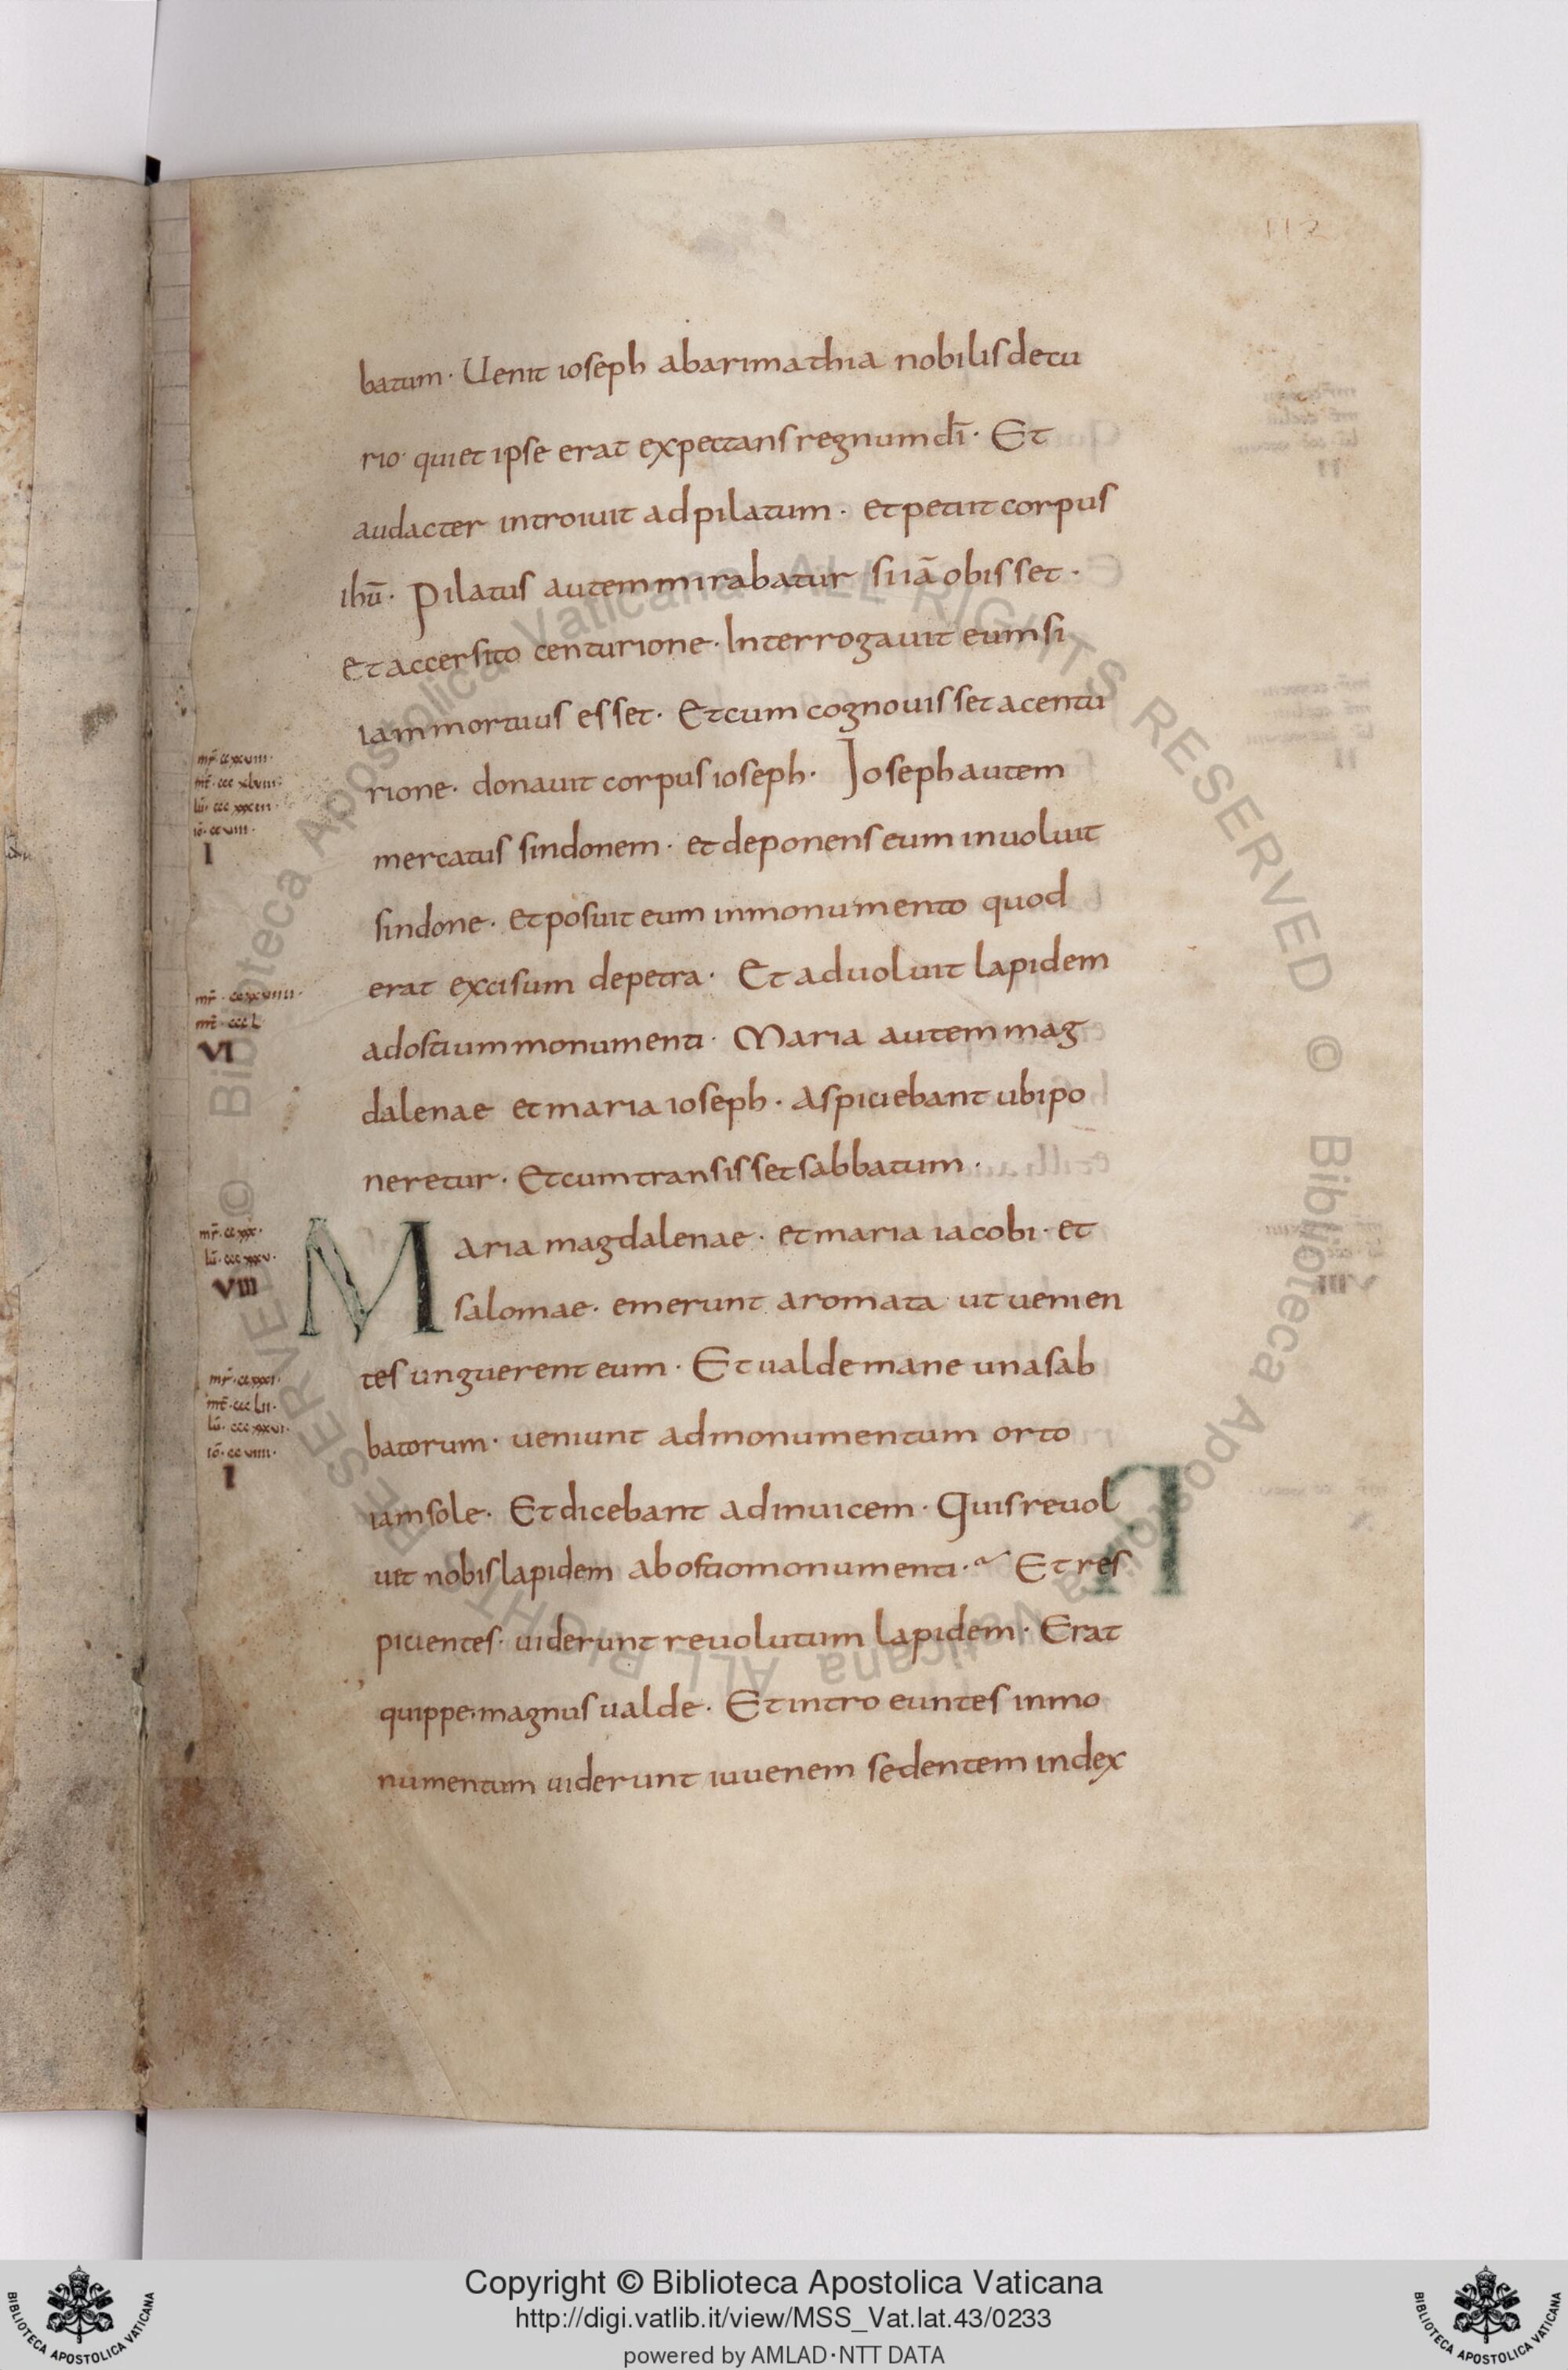 112
batum · Uenit ioseph abarimathia nobilis decu
rio · qui et ipse erat expectans regnum dī · Et
audacter introiuit ad pilatum · et petiit corpus
ihū · Pilatus autem mirabatur si iā obisset ·
et accersito centurione · Interrogauit eum si
iam mortuus esset · Et cum cognouisset a centu
rione · donauit corpus ioseph · Ioseph autem
mercatus sindonem · et deponens eum inuoluit
sindone · et posuit eum in monumento quod
erat excisum de petra · Et aduoluit lapidem
ad ostium monumenti · Maria autem mag
dalenae et maria ioseph · aspiciebant ubi po
neretur · Et cum transisset sabbatum ·
Maria magdalenae · et maria iacobi · et
salomae · emerunt aromata ut uenien
tes unguerent eum · Et ualde mane una sab
batorum · ueniunt ad monumentum orto
iam sole · Et dicebant ad inuicem · Quis reuol
uet nobis lapidem ab ostio monumenti · Et res
picientes · uiderunt reuolutum lapidem · Erat
quippe magnus ualde · Et intro euntes in mo
numentum uiderunt iuuenem sedentem in dex
I
mt̄ · ccc L
VI
VIII
mt̄ · ccc Lii ·
I
Copyright © Biblioteca Apostolica Vaticana
http://digi.vatlib.it/view/MSS_Vat.lat.43/0233
powered by AMLAD·NTT DATA
BIBLIOTECA APOSTOLICA VATICANA
BIBLIOTECA APOSTOLICA VATICANA
© Biblioteca Apostolica Vaticana ALL RIGHTS RESERVED
© Biblioteca Apostolica Vaticana ALL RIGHTS RESERVED